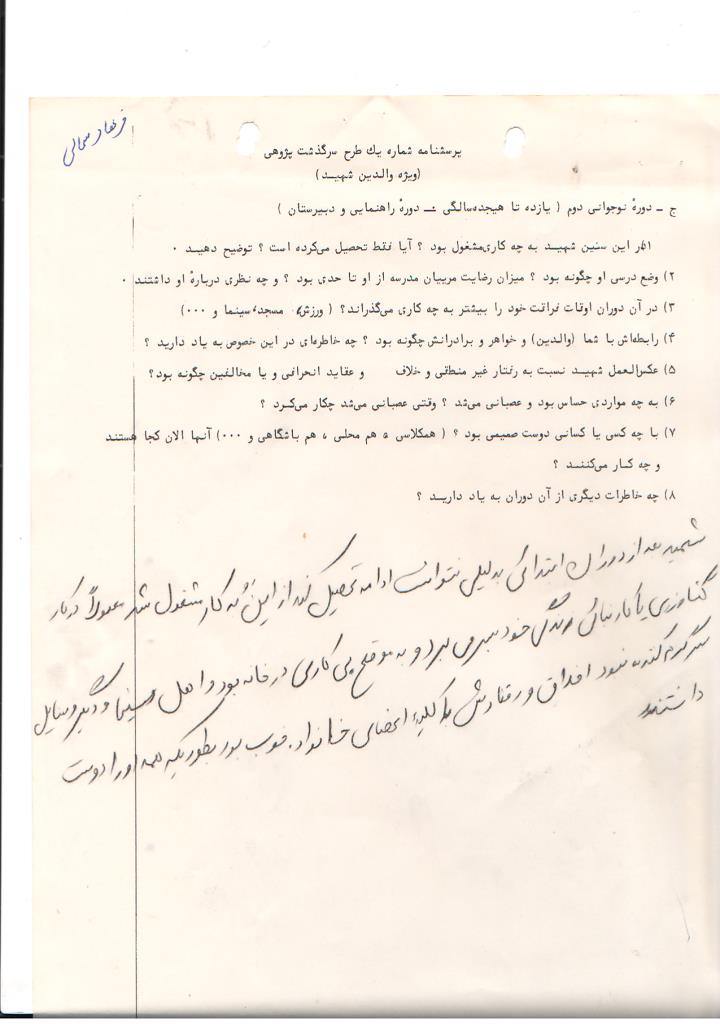 فرهاد
پرسشنامه شماره یك طرح سرگذشت پژوهی
(ویژه والدین شهیـد)
ج ـ دورهٔ نوجوانی دوم ( یازده تا هیجده‌سالگی :ـ دورهٔ راهنمایی و دبیرستان )
۱)در این سنین شهیـد به چه کاری‌مشغول بود ؟ آیا فقط تحصیل می‌کرده است ؟ توضیح دهیـد .
۲) وضع درسی او چگونه بود ؟ میزان رضایت مربیان مدرسه از او تا حدی بود ؟ و چه نظری دربارهٔ او داشتند .
۳) در آن دوران اوقات فراقت خود را بیشتر به چه کاری می‌گذراند؟ ( ورزش، مسجد، سینما و ۰۰۰)
۴) رابطه‌اش با شما (والدین) و خواهر و برادرانش چگونه بود ؟ چه خاطره‌ای در این خصوص به یاد دارید ؟
۵) عکس‌العمل شهیـد نسبت به رفتار غیر منطقی و خلاف و عقاید انحرافی و یا مخالفین چگونه بود؟
۶) به چه مواردی حساس بود و عصبانی می‌شد ؟ وقتی عصبانی می‌شد چکار می‌کرد ؟
۷) با چه کسی یا کسانی دوست صمیمی بود ؟ ( همکلاسی ، هم محلـی ، هم باشگاهی و ۰۰۰) آنها الان کجا هستند
و چه کـار می‌کننـد ؟
۸) چه خاطرات دیگری از آن دوران به یاد داریـد ؟
شهید بعد از دوران ابتدائی بدلیلی نتوانست ادامه تحصیل کند از این رو به کار مشغول شد معمولاً در کار
کشاورزی یا کار بنائی زندگی خود بسر می برد و به موقع بی کاری در خانه بود و اهل سینما و دیگر وسایل
سرگرم کننده نبود اخلاق و رفتارش با کلیه اعضای خانواده خوب بود بطوریکه همه او را دوست
داشتند